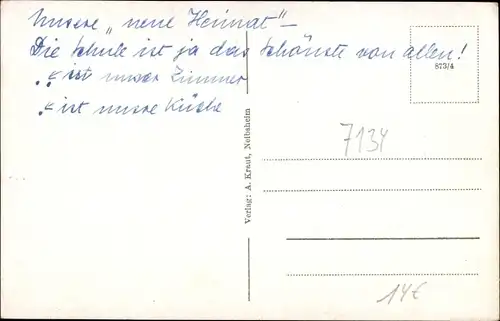 Unsere „neue Heimat" –
Die Schule ist ja das Schönste von allen!
ist unser Zimmer
ist unsere Küche
873/4
7134
Verlag: A. Kraut, Neibsheim
14€